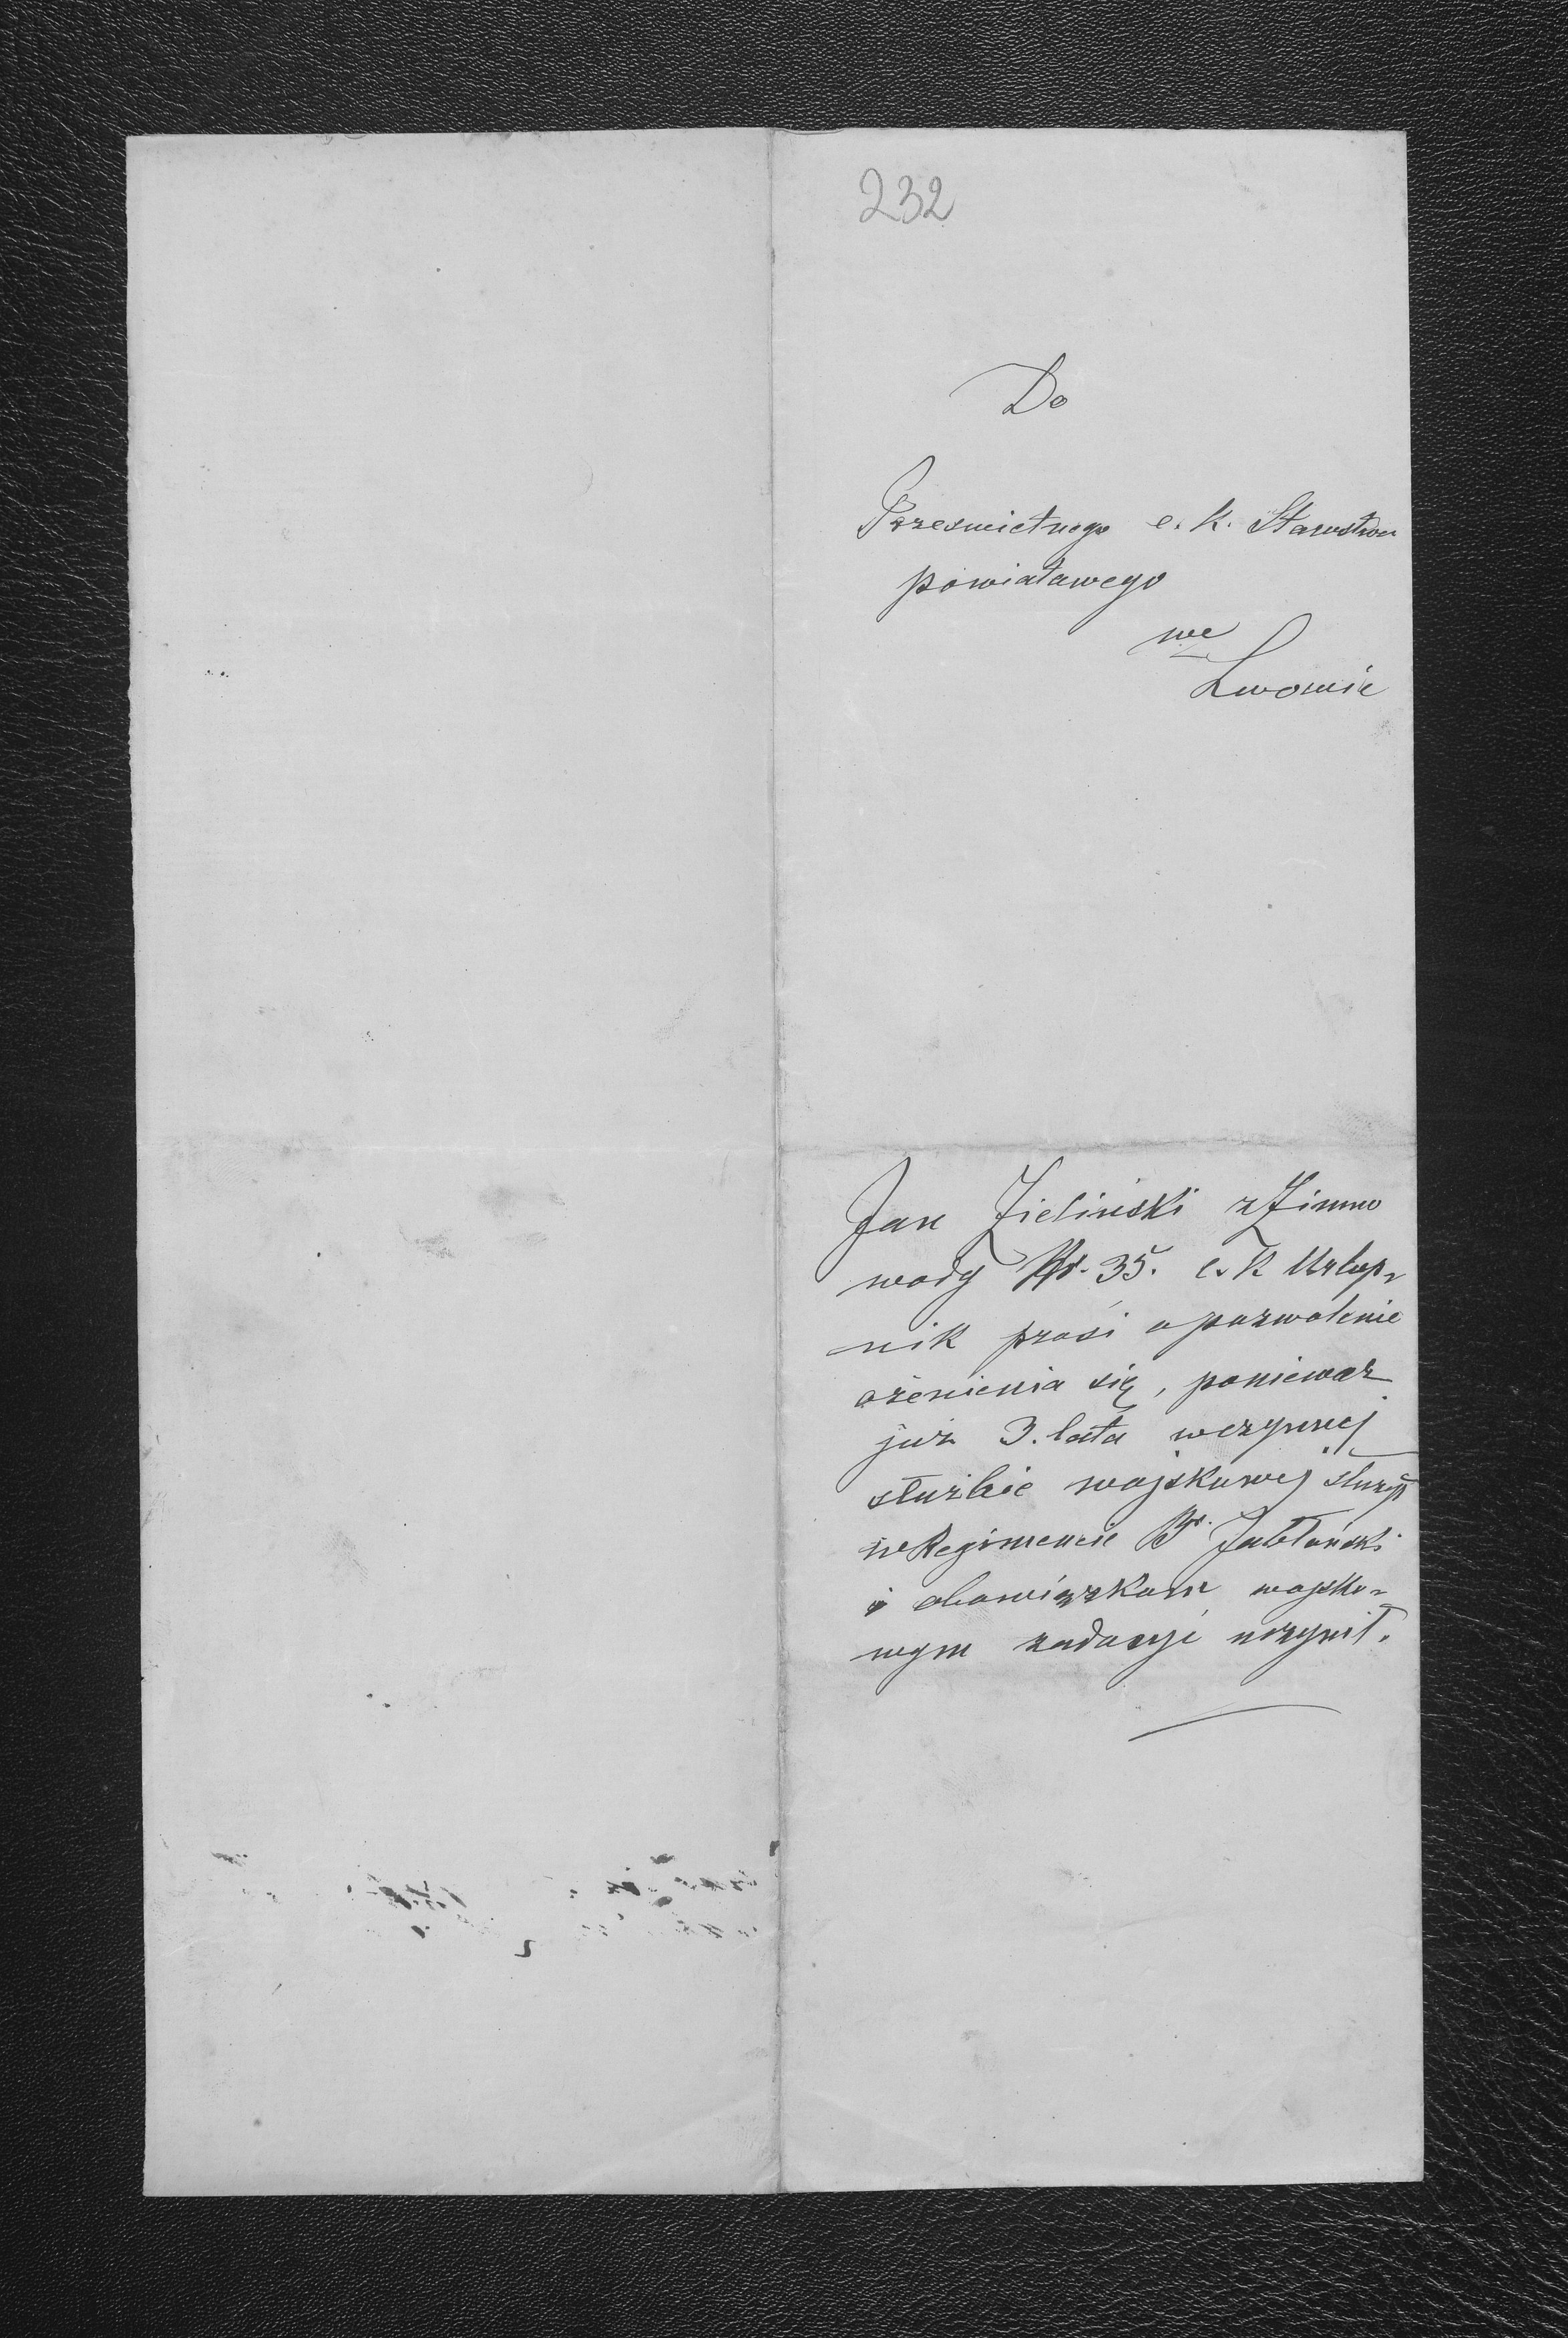 232
Do
Prześwietnego c. k. Starostwa
powiatowego
we
Lwowie
Jan Zieliński z Zimno
wody Nr. 35. c. k Urlop-
nik prosi o pozwolenie
ożenienia się, ponieważ
już 3. lata w czynnej
służbie wojskowej służył
w Regimencie Br. Jabłoński
i obowiązkom wojsko-
wym zadosyć uczynił.